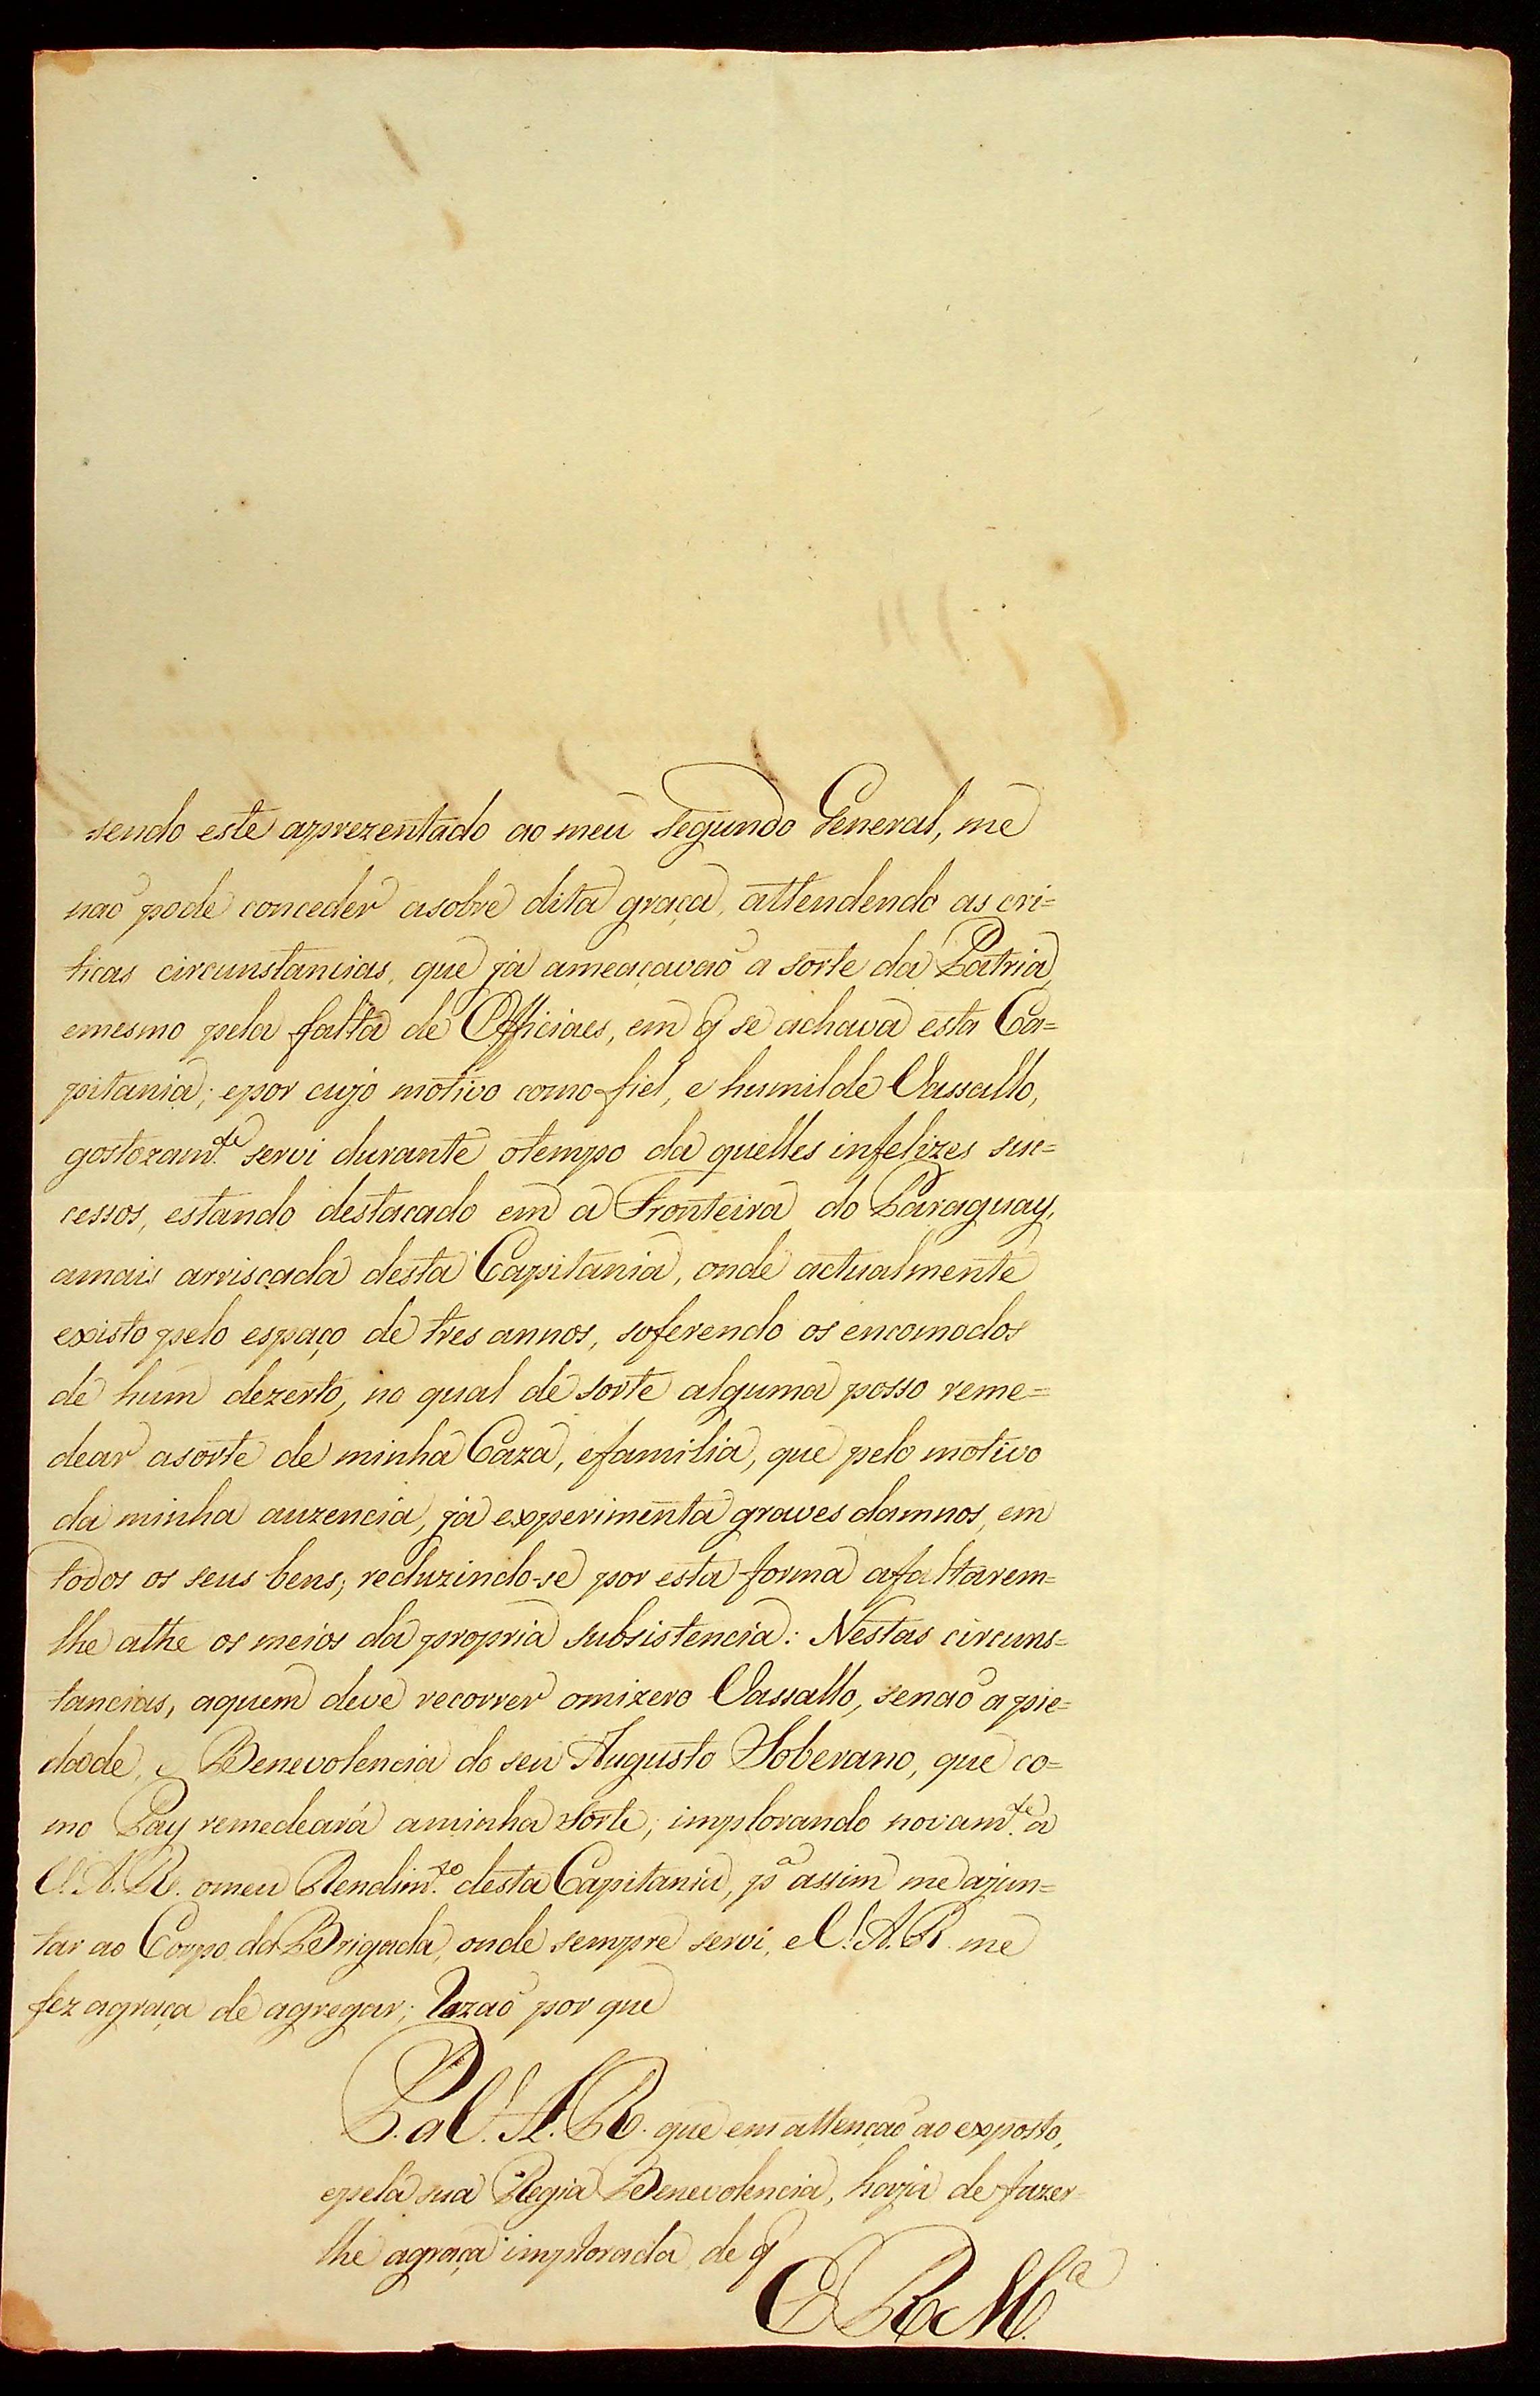 sendo este aprezentado ao meu segundo General, me
naõ pode conceder asobre dita graça, attendendo as cri=
ticas circunstancias, que ja ameaçavaõ a sorte da Patria,
emesmo pela falta de Officiaes, em q̃ se achava esta Ca=
pitania; epor cujo motivo como fiel, e humilde Vassallo,
gostozam.te servi durante otempo da quelles infelizes suc=
cessos, estando destacado em a Fronteira do Paraguay,
amais arriscada desta Capitania, onde actualmente
existo pelo espaço de tres annos, soferendo os encomodos
de hum dezerto, no qual de sorte alguma posso reme=
dear asorte de minha Caza, efamilia, que pelo motivo
da minha auzencia, ja experimenta graves damnos, em
todos os seus bens; reduzindo-se por esta forma afaltarem=
lhe athe os meios da propria subsistencia: Nestas circuns=
tancias, aquem deve recorrer omizero Vassallo, senaõ apie=
dade, e Benevolencia do seu Augusto Soberano, que co=
mo Pay remedeará aminha sorte; implorando novam.te a
V. A. R. omeu Rendim.to desta Capitania, p.a assim me ajun=
tar ao Corpo da Brigada, onde sempre servi, e V. A. R. me
fez agraça de agregar; Razaõ por que
P. a V. A. R. que em attençaõ ao exposto,
epela sua Regia Benevolencia, haja de fazer=
lhe agraça implorada, de q̃
E R M.ce